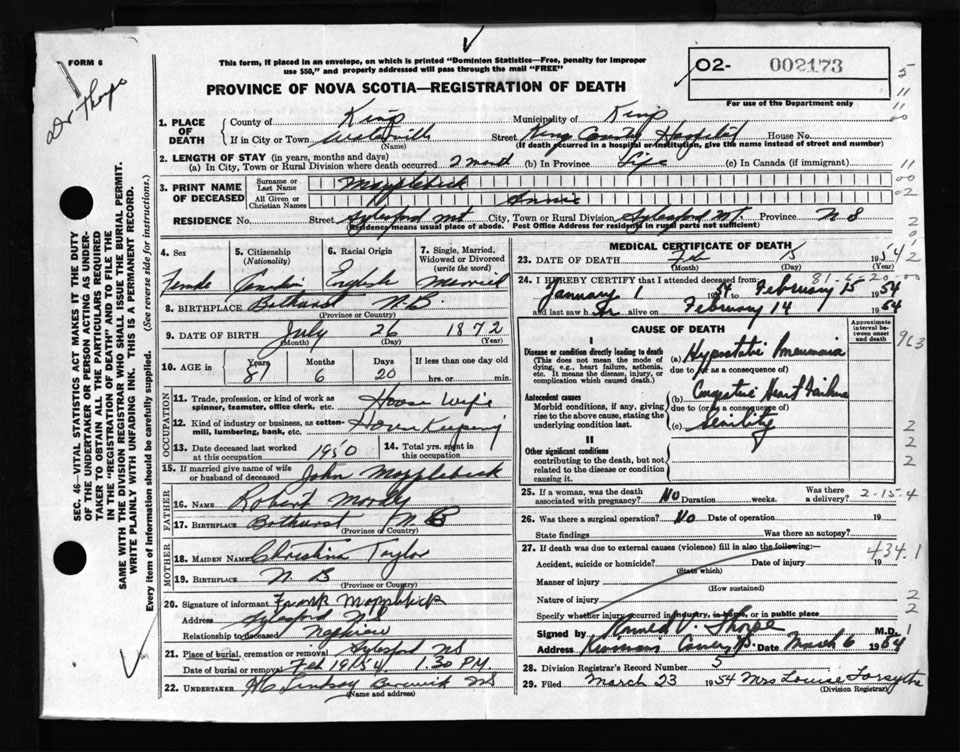 FORM 6
Dr Thorpe
This form, if placed in an envelope, on which is printed "Dominion Statistics—Free, penalty for improper
use $50," and properly addressed will pass through the mail "FREE"
PROVINCE OF NOVA SCOTIA—REGISTRATION OF DEATH
O2- 002173
For use of the Department only
1. PLACE OF DEATH County of Kings Municipality of Kings
If in City or Town Waterville Street Kings County Hospital House No.
(Name) (If death occurred in a hospital or institution, give the name instead of street and number)
2. LENGTH OF STAY (in years, months and days)
(a) In City, Town or Rural Division where death occurred 2 (b) In Province Life (c) In Canada (if immigrant)
3. PRINT NAME OF DECEASED Surname or Last Name Mapplebeck
All Given or Christian Names Annie
RESIDENCE No. Street Aylesford Mt City, Town or Rural Division Aylesford Mt. Province N S
(Residence means usual place of abode. Post Office Address for residents in rural parts not sufficient)
4. Sex Female
5. Citizenship (Nationality) Canadian
6. Racial Origin English
7. Single, Married, Widowed or Divorced (write the word) Married
8. BIRTHPLACE Bathurst N.B.
(Province or Country)
9. DATE OF BIRTH July 26 1872
(Month) (Day) (Year)
10. AGE in Years 81 Months 6 Days 20 If less than one day old
hrs. or min.
OCCUPATION
11. Trade, profession, or kind of work as spinner, teamster, office clerk, etc. House Wife
12. Kind of industry or business, as cotton-mill, lumbering, bank, etc. House Keeping
13. Date deceased last worked at this occupation 1950
14. Total yrs. spent in this occupation
15. If married give name of wife or husband of deceased John Mapplebeck
FATHER
16. Name Robert
17. Birthplace Bathurst N B
(Province or Country)
MOTHER
18. Maiden Name Christina Taylor
19. Birthplace N B
(Province or Country)
20. Signature of informant Frank Mapplebeck
Address Aylesford N S
Relationship to deceased Nephew
21. Place of burial, cremation or removal Aylesford N S
Date of burial or removal Feb 19 1954 1.30 P.M.
22. UNDERTAKER H C Lindsay Berwick N S
(Name and address)
MEDICAL CERTIFICATE OF DEATH
23. DATE OF DEATH Feb 15 1954
(Month) (Day) (Year)
24. I HEREBY CERTIFY that I attended deceased from
January 1 1954 to February 15 1954
and last saw her alive on February 14 1954
CAUSE OF DEATH
Approximate interval between onset and death
I
Disease or condition directly leading to death
(This does not mean the mode of dying, e.g., heart failure, asthenia, etc. It means the disease, injury, or complication which caused death.)
(a) Hypostatic Pneumonia
due to (or as a consequence of)
Antecedent causes
Morbid conditions, if any, giving rise to the above cause, stating the underlying condition last.
(b) Congestive Heart Failure
due to (or as a consequence of)
(c) Senility
II
Other significant conditions
contributing to the death, but not related to the disease or condition causing it.
25. If a woman, was the death associated with pregnancy? No Duration weeks. Was there a delivery?
2-15-4
26. Was there a surgical operation? No Date of operation 19
State findings Was there an autopsy?
27. If death was due to external causes (violence) fill in also the following:—
434.1
Accident, suicide or homicide? Date of injury 19
(State which)
Manner of injury
(How sustained)
Nature of injury
Specify whether injury occurred in industry, in home, or in public place
Signed by Thorpe M.D.
Address Date March 6 1954
28. Division Registrar's Record Number 5
29. Filed March 23 1954 Mrs Louise Forsythe
(Division Registrar)
SEC. 46—VITAL STATISTICS ACT MAKES IT THE DUTY
OF THE UNDERTAKER OR PERSON ACTING AS UNDER-
TAKER TO OBTAIN ALL THE PARTICULARS REQUIRED
IN THE "REGISTRATION OF DEATH" AND TO FILE THE
SAME WITH THE DIVISION REGISTRAR WHO SHALL ISSUE THE BURIAL PERMIT.
WRITE PLAINLY WITH UNFADING INK. THIS IS A PERMANENT RECORD.
Every item of information should be carefully supplied. (See reverse side for instructions.)